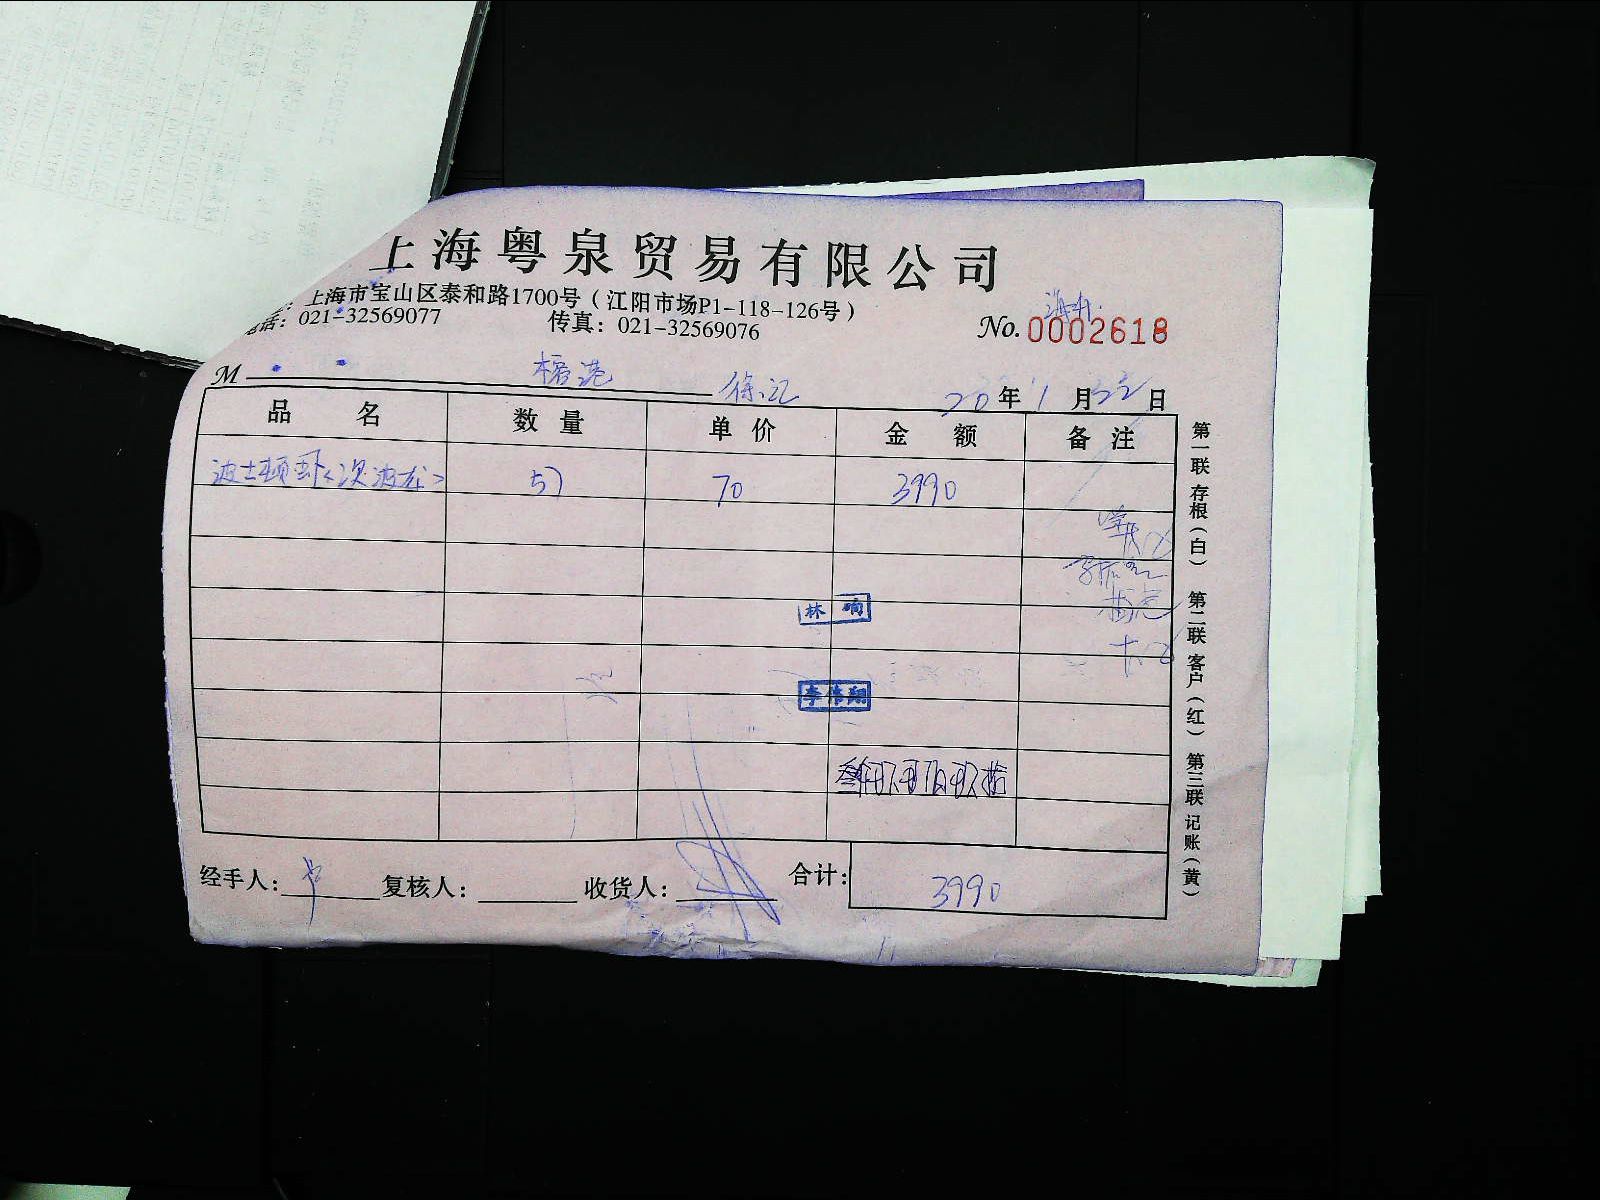 上海粤泉贸易有限公司
上海市宝山区泰和路1700号（江阳市场P1-118-126号）
电话：021-32569077 传真：021-32569076
No. 0002618
M 榕港 徐汇 20年1月22日
品名 数量 单价 金额 备注
波士顿虾<次波龙> 57 70 3990
林
李伟翔
合计： 3990
经手人： 复核人： 收货人：
第一联存根（白） 第二联客户（红） 第三联记账（黄）